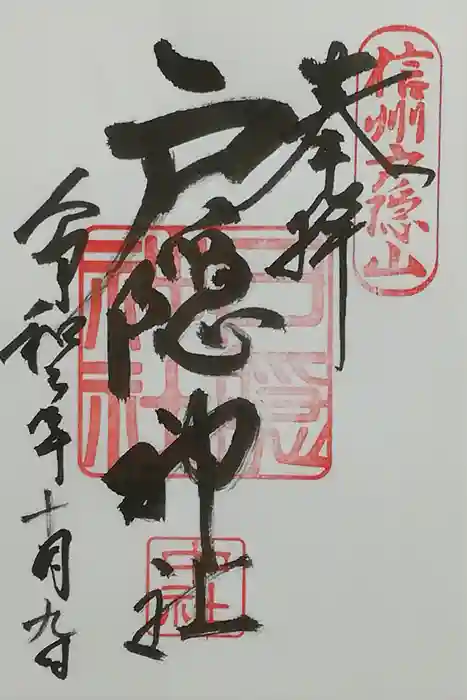 信州戸隠山
奉拝
戸隠神社
戸隠神社
中社
令和元年十月九日